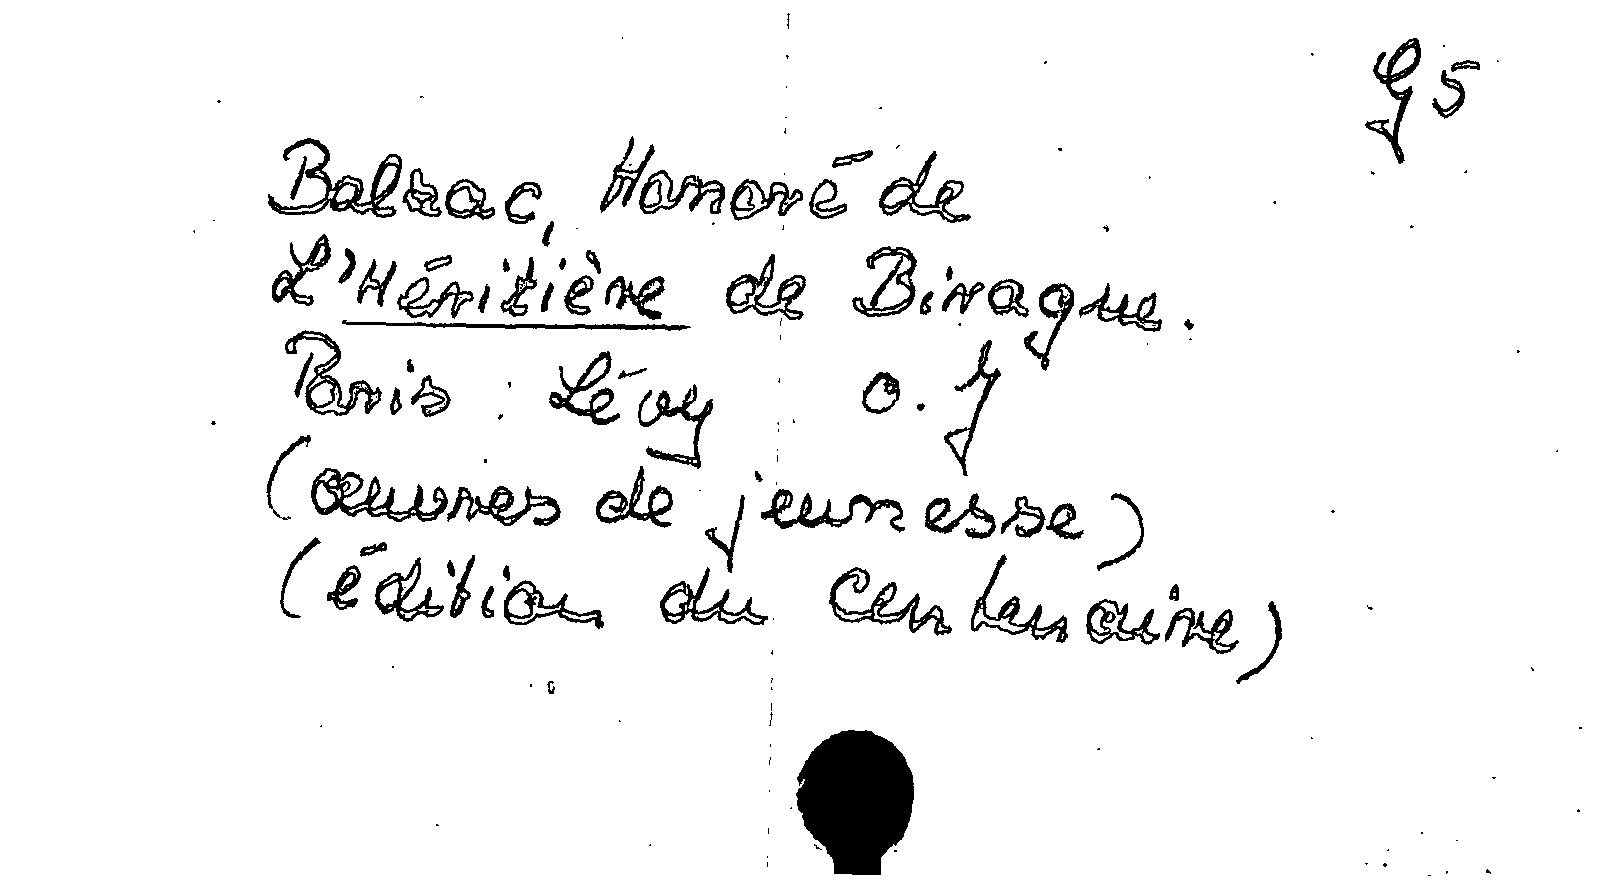 G5
Balzac, Honoré de
L'Héritière de Birague.
Paris : Lévy o. J
(œuvres de jeunesse)
(édition du Centenaire)